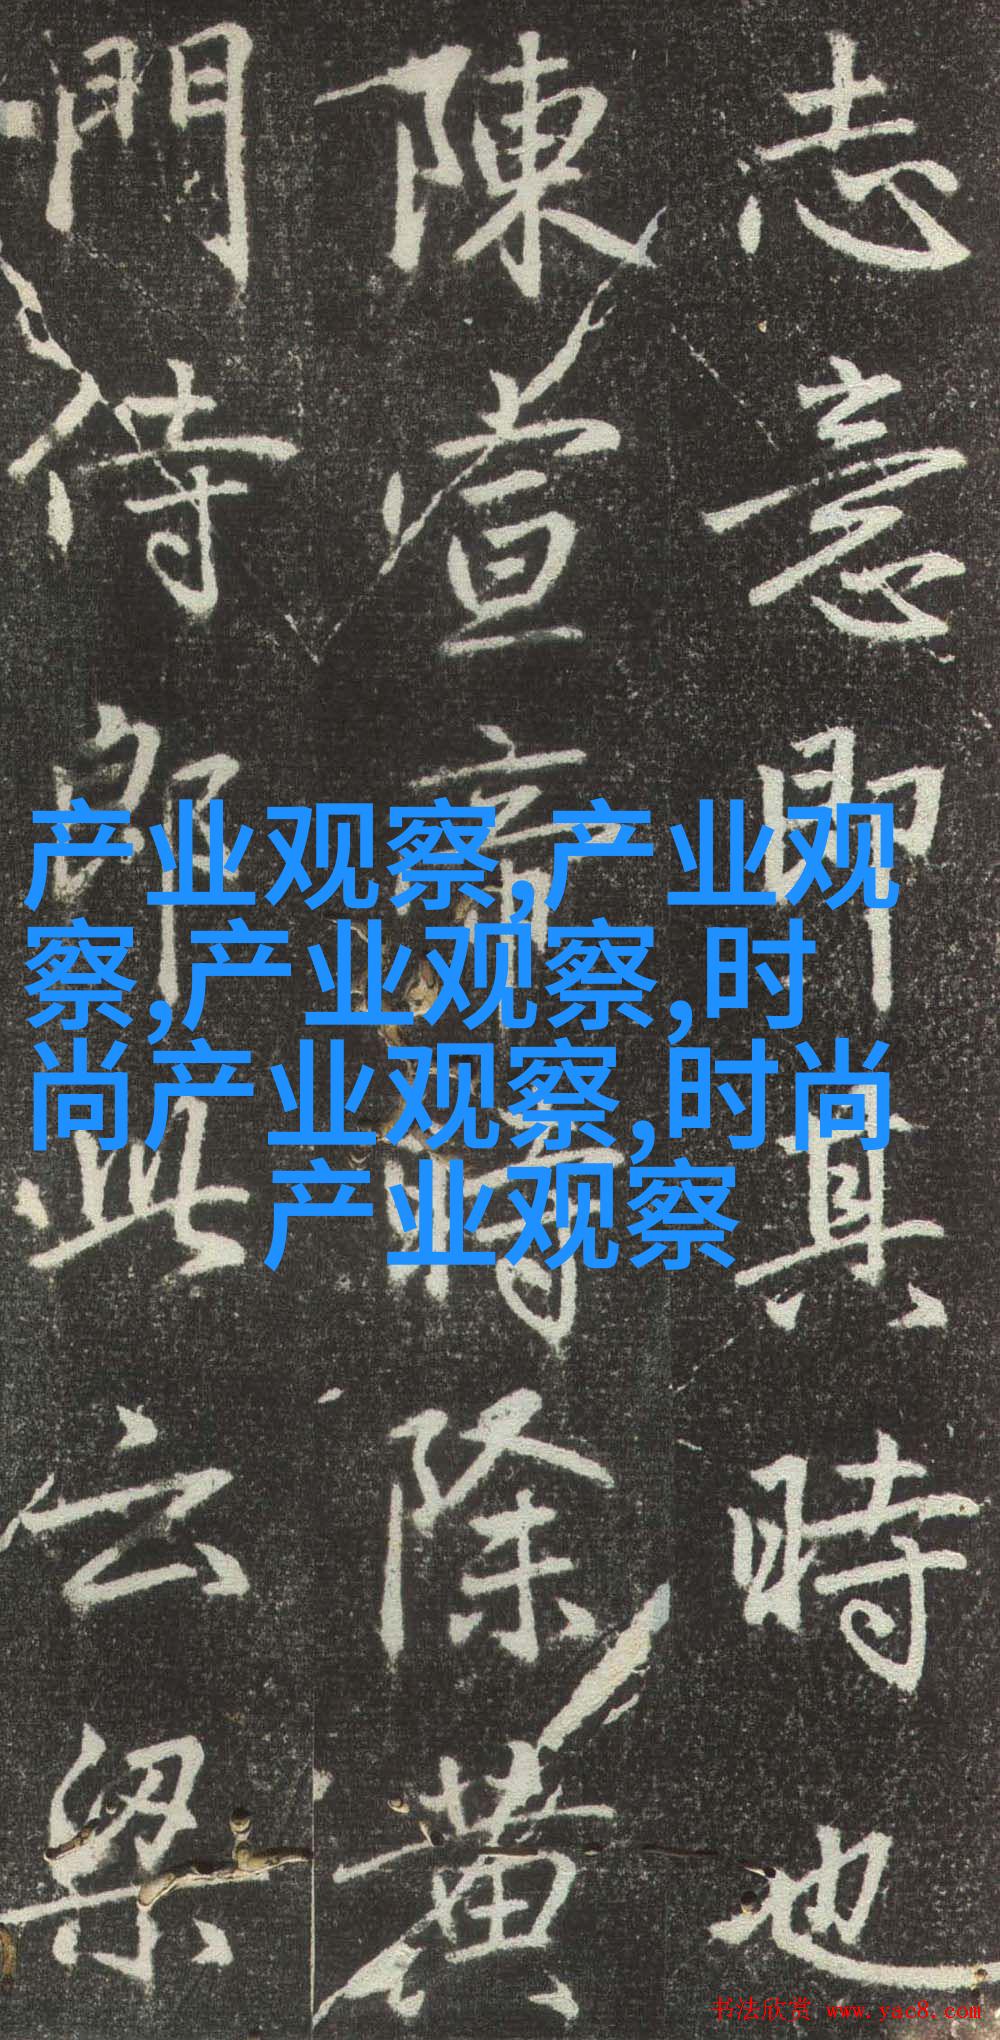 志意即其時也
陳宣帝時除黄
門侍郎此云梁
产业观察,产业观
察,产业观察,时
尚产业观察,时尚
产业观察
书法欣赏 www.yac8.com